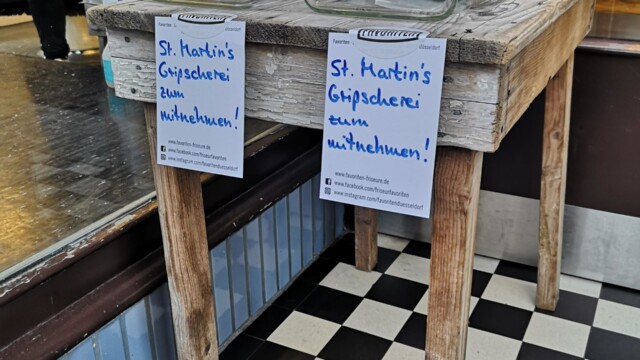 Favoriten
düsseldorf
St. Martin's
Gripscherei
zum
mitnehmen!
www.favoriten-friseum.de
www.facebook.com/friseurfavoriten
www.instagram.com/favoritenduesseldorf
Favoriten
düsseldorf
St. Martin's
Gripscherei
zum
mitnehmen!
www.favoriten-friseum.de
www.facebook.com/friseurfavoriten
www.instagram.com/favoritenduesseldorf